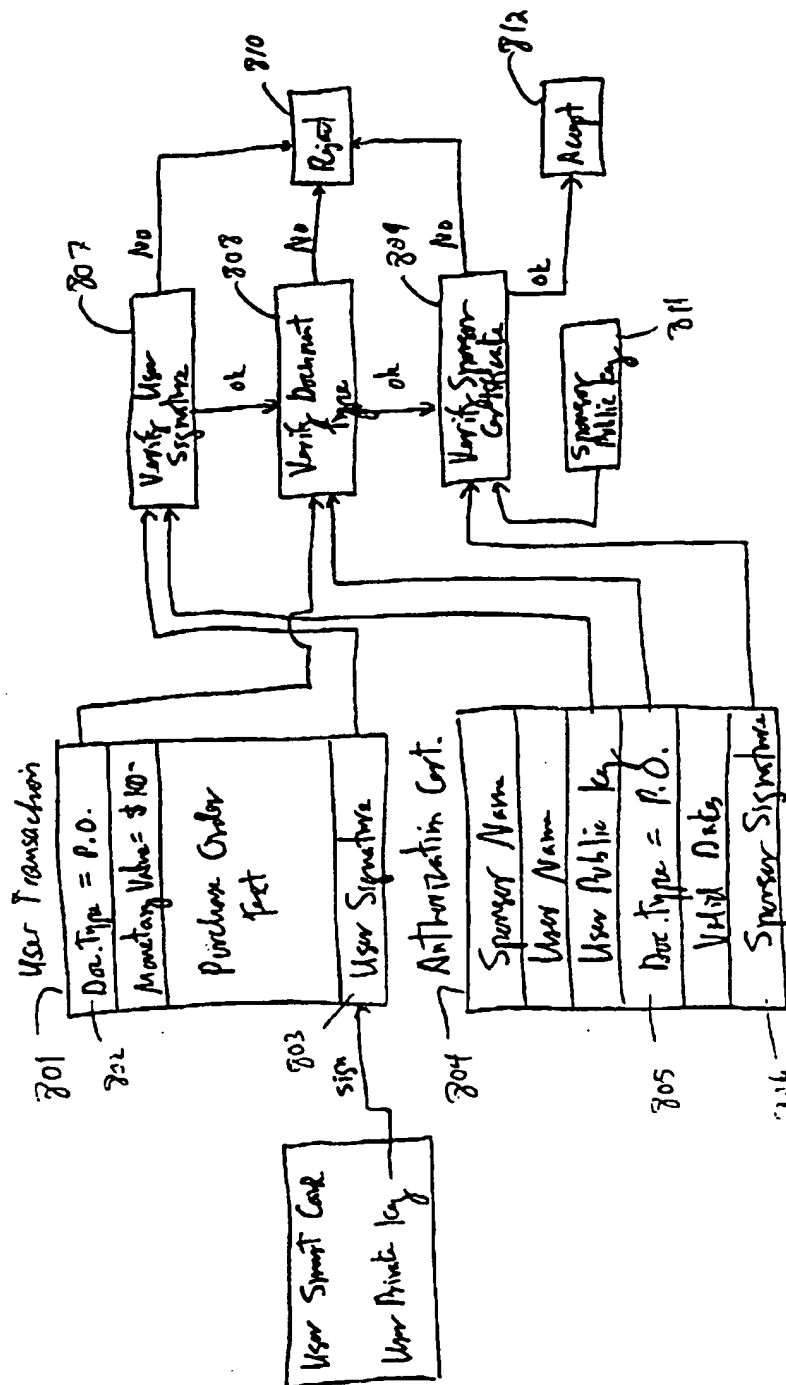 User Smart Card
User Private Key
sign
801
User Transaction
802
Doc. Type = P.O.
Monetary Value = $100-
Purchase Order
Text
803
User Signature
804
Authorization Cert.
Sponsor Name
User Name
User Public Key
805
Doc. Type = P.O.
Valid Dates
Sponsor Signature
807
Verify User
Signature
No
ok
808
Verify Document
Type
No
ok
809
Verify Sponsor
Certificate
No
ok
810
Reject
Sponsor
Public Key
811
812
Accept